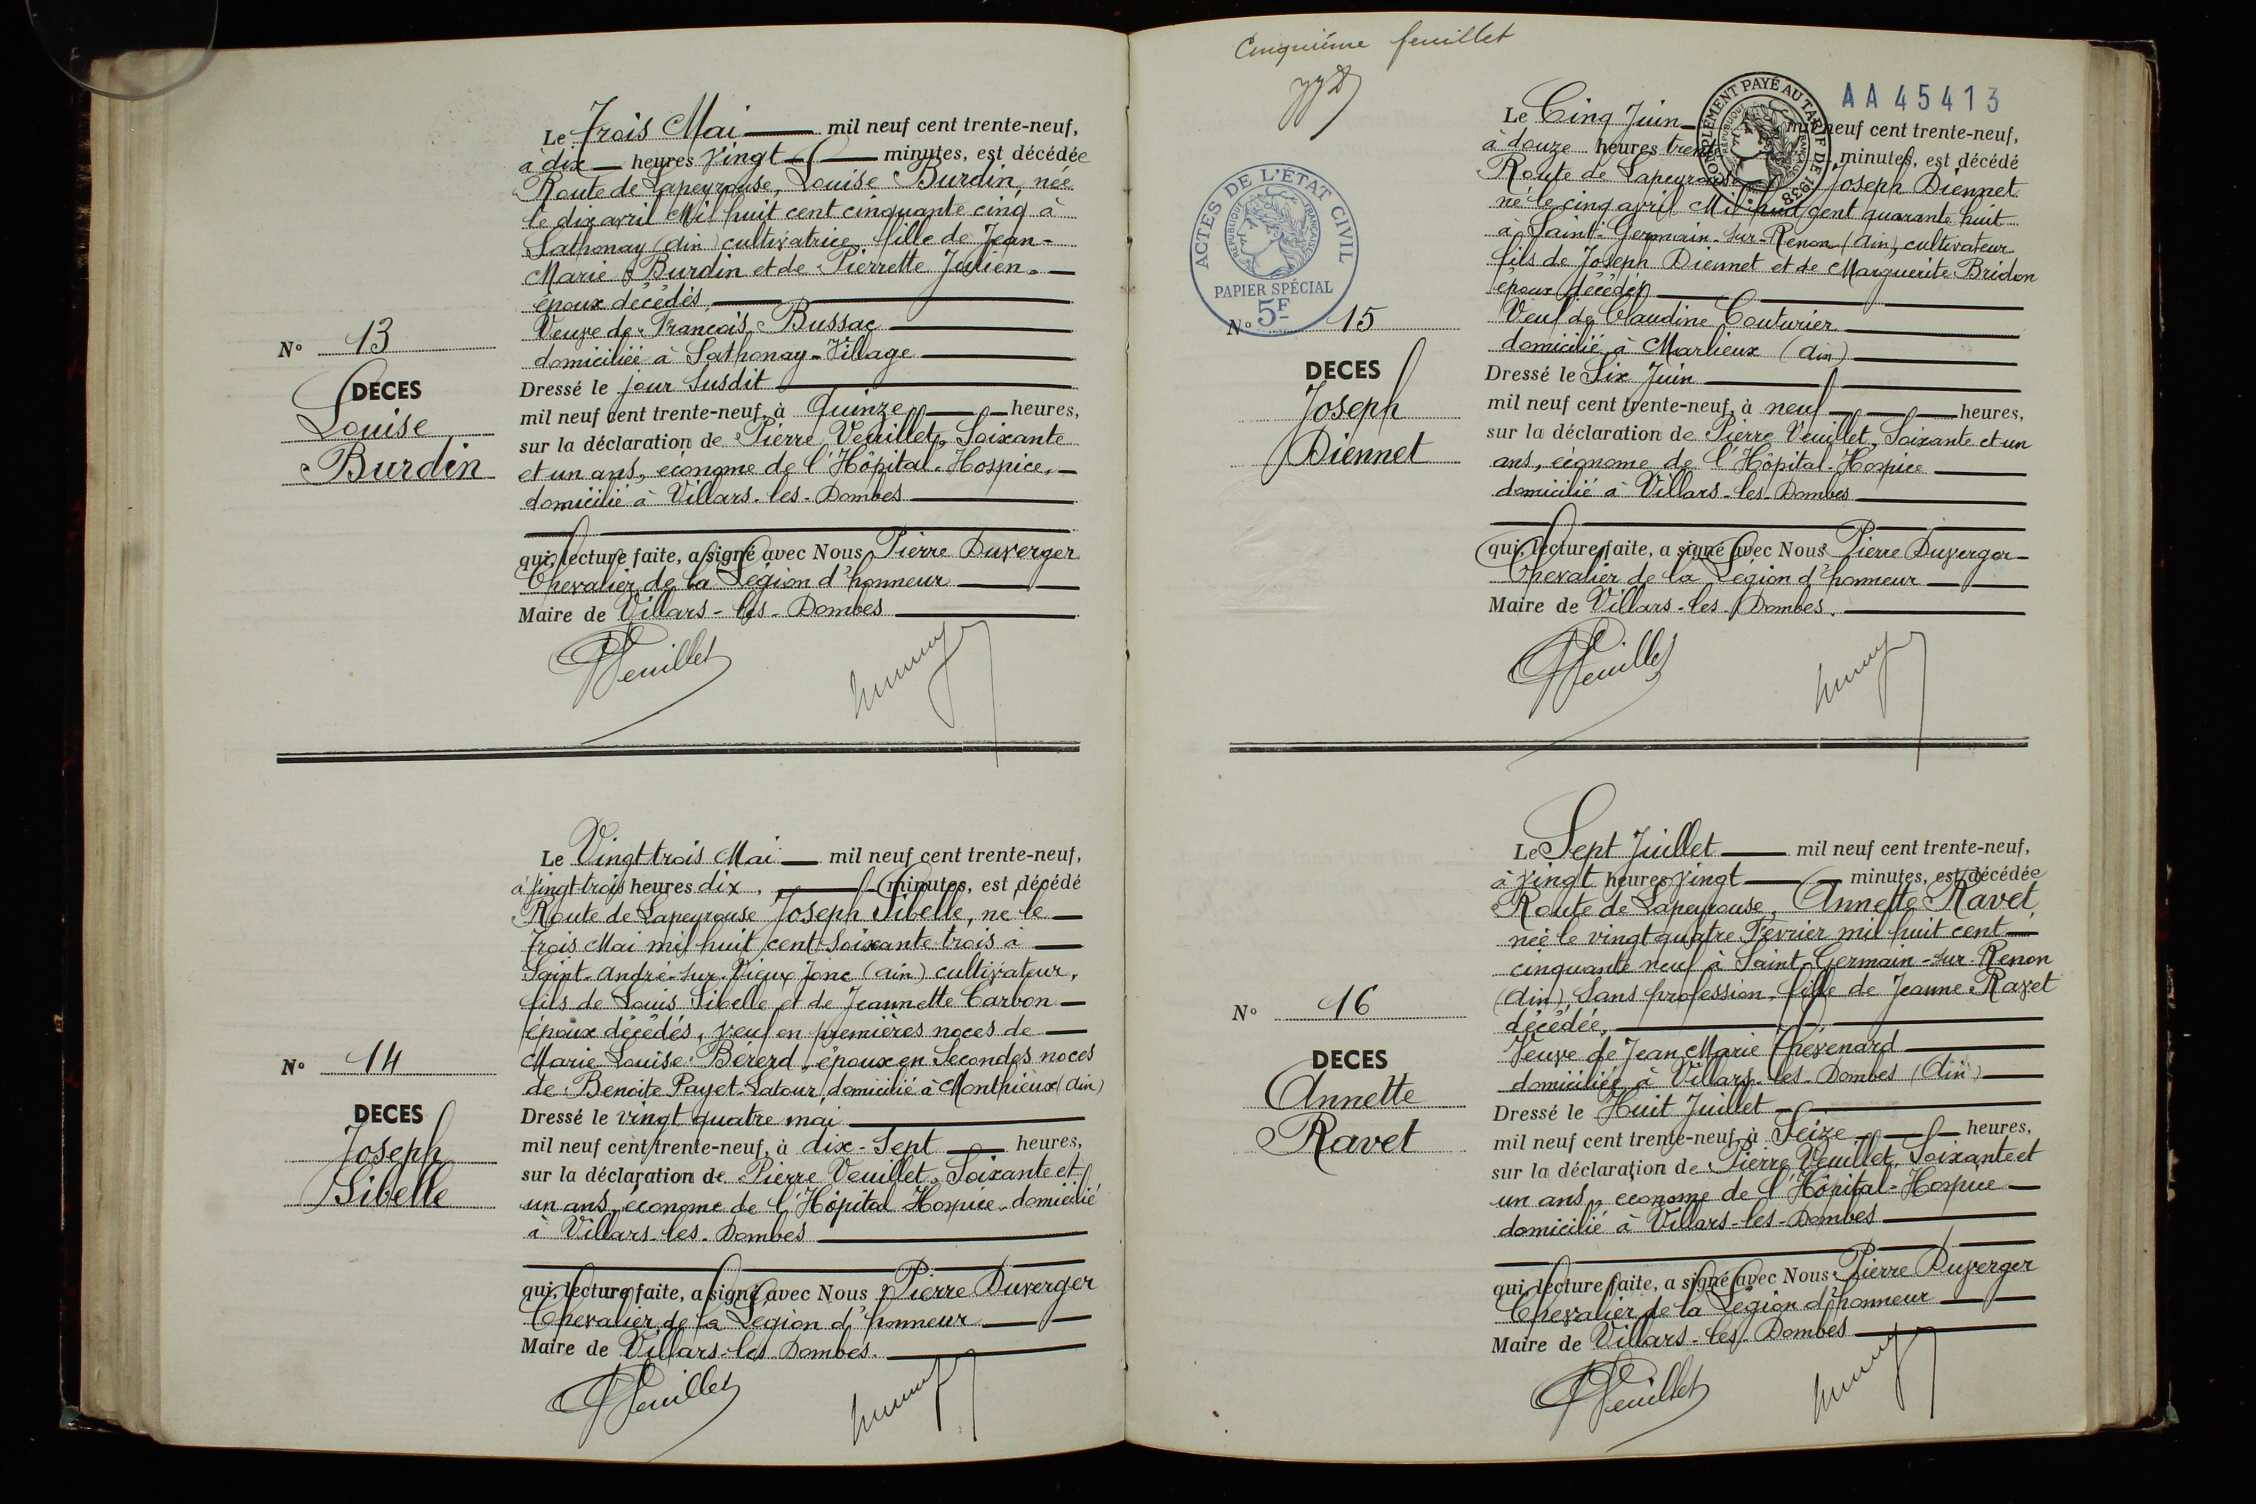 Le Trois Mai mil neuf cent trente-neuf,
à dix heures vingt minutes, est décédée
Route de Lapeyrouse, Louise Burdin, née
le dix avril Mil huit cent cinquante cinq à
Sathonay (Ain) cultivatrice, fille de Jean-
Marie Burdin et de Pierrette Julien.
époux décédés
Veuve de François Bussac
domiciliée à Sathonay-Village
Dressé le jour susdit
mil neuf cent trente-neuf, à Quinze heures,
sur la déclaration de Pierre Veuillet, Soixante
et un ans, économe de l'Hôpital-Hospice,
domicilié à Villars-les-Dombes
qui, lecture faite, a signé avec Nous Pierre Duverger
Chevalier de la Légion d'honneur
Maire de Villars-les-Dombes
N° 13
DECES
Louise
Burdin
PVeuillet
Le Vingt trois Mai mil neuf cent trente-neuf,
à Vingt-trois heures dix, minutes, est décédé
Route de Lapeyrouse Joseph Sibelle, né le
trois Mai mil huit cent soixante trois à
Saint-André-sur-Vieux Jonc (Ain) cultivateur,
fils de Louis Sibelle et de Jeannette Carbon
époux décédés, veuf en premières noces de
Marie Louise Bererd, époux en secondes noces
de Benoite Payet-Latour, domicilié à Monthieux (Ain)
Dressé le vingt quatre mai
mil neuf cent trente-neuf, à dix-sept heures,
sur la déclaration de Pierre Veuillet, Soixante et
un ans, économe de l'Hôpital Hospice, domicilié
à Villars-les-Dombes
qui, lecture faite, a signé avec Nous Pierre Duverger
Chevalier de la Légion d'honneur
Maire de Villars-les Dombes.
N° 14
DECES
Joseph
Sibelle
PVeuillet
Cinquième feuillet
ACTES DE L'ÉTAT CIVIL
RÉPUBLIQUE FRANÇAISE
PAPIER SPÉCIAL
5F
COMPLÉMENT PAYÉ AU TARIF DE 1938
RÉPUBLIQUE FRANÇAISE
AA 45413
Le Cinq Juin mil neuf cent trente-neuf,
à douze heures trente minutes, est décédé
Route de Lapeyrouse Joseph Diennet
né le cinq avril Mil huit cent quarante huit
à Saint-Germain-sur-Renon (Ain), cultivateur
fils de Joseph Diennet et de Marguerite Bridon
époux décédés
Veuf de Claudine Couturier
domicilié à Marlieux (Ain)
Dressé le Six Juin
mil neuf cent trente-neuf, à neuf heures,
sur la déclaration de Pierre Veuillet, Soixante et un
ans, économe de l'Hôpital-Hospice
domicilié à Villars-les-Dombes
qui, lecture faite, a signé avec Nous Pierre Duverger
Chevalier de la Légion d'honneur
Maire de Villars-les-Dombes.
N° 15
DECES
Joseph
Diennet
PVeuillet
Le Sept Juillet mil neuf cent trente-neuf,
à vingt heures vingt minutes, est décédée
Route de Lapeyrouse, Annette Ravet
née le vingt quatre Février mil huit cent
cinquante neuf à Saint-Germain-sur-Renon
(Ain), Sans profession, fille de Jeanne Ravet
décédée,
Veuve de Jean Marie Chevenard
domiciliée à Villars-les-Dombes (Ain)
Dressé le Huit Juillet
mil neuf cent trente-neuf, à Seize heures,
sur la déclaration de Pierre Veuillet, Soixante et
un ans, économe de l'Hôpital-Hospice
domicilié à Villars-les-Dombes
qui, lecture faite, a signé avec Nous Pierre Duverger
Chevalier de la Légion d'honneur
Maire de Villars-les-Dombes
N° 16
DECES
Annette
Ravet
PVeuillet